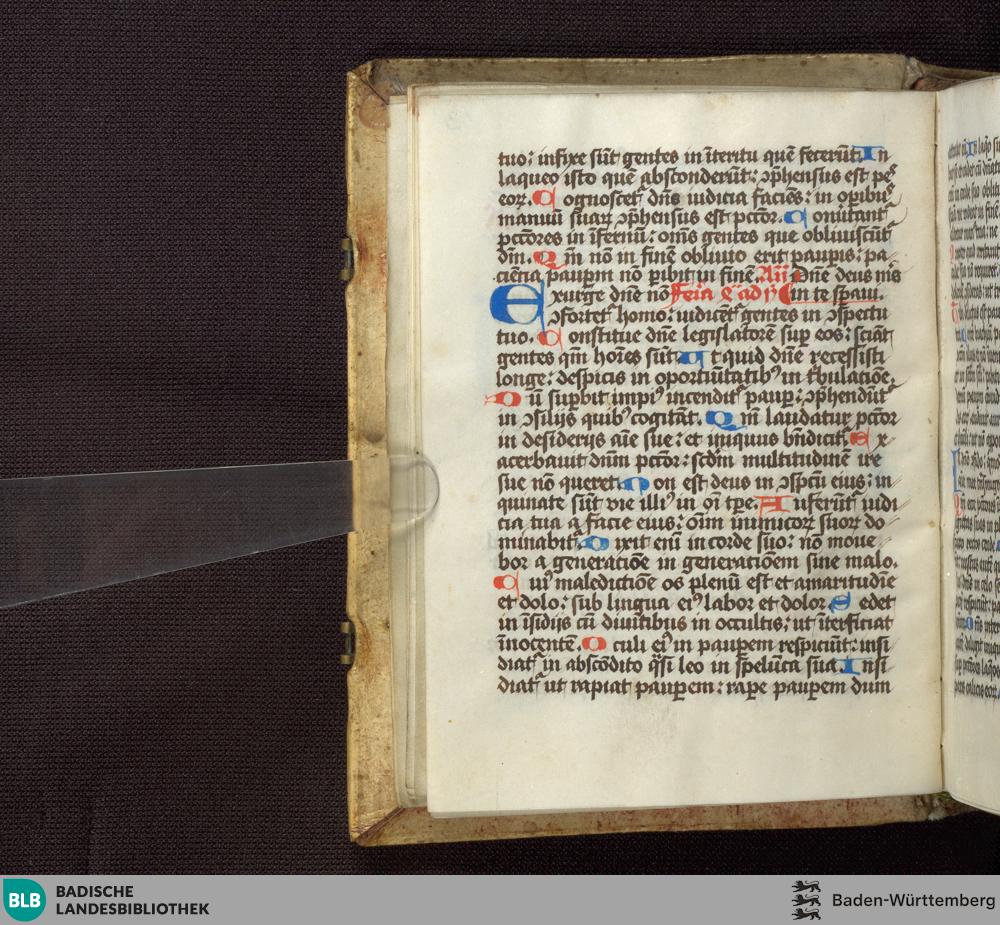 tuo: infixe sūt gentes in īteritu quē fecerūt. In
laqueo isto quē absconderūt: ꝯp̄hensus est pes
eoꝝ. Cognoscet᷑ dn̄s iudicia faciēs: in oꝑibꝰ
manuū suaꝝ ꝯp̄hensus est pctōr. Conūtant᷑
pctōres in īfernū: om̄s gentes que obliuiscūt᷑
dm̄. Qm̄ nō in finē obliuio erit pauꝑis: pa
ciēcia pauꝑm nō ꝑibit in finē. An̄ Dn̄e deus ms̄
Exurge dn̄e nō Feria
ꝯfortet᷑ homo: iudicēt᷑ gentes in ꝯspectu
tuo. Constitue dn̄e legislatorē suꝑ eos: sciāt
gentes qm̄ hoīes sūt. Ut quid dn̄e recessisti
longe: despicis in oportūitatibꝰ in t̄bulatiōe.
Dū suꝑbit impiꝰ incendit᷑ pauꝑ: ꝯp̄hendūt᷑
in ꝯsilijs quibꝰ cogitāt. Qm̄ laudatur pctōr
in desiderijs aīe sue: et iniquus bn̄dicit᷑. Ex
acerbauit dnm̄ pctōr: scdm̄ multitudinē ire
sue nō queret. Non est deus in ꝯspcū eius: in
quinate sūt vie illiꝰ in oī tp̄e. Auferūt᷑ iudi
cia tua a facie eius: oīm inimicoꝝ suoꝝ do
minabit᷑. Dixit enī in corde suo: nō moue
bor a generatiōe in generatiōem sine malo.
Cuiꝰ maledictiōe os plenū est et amaritudīe
et dolo: sub lingua eiꝰ labor et dolor. Sedet
in īsidijs cū diuitibus in occultis: ut īterficiat
īnocentē. Oculi eiꝰ in pauꝑem respiciūt: insi
diat᷑ in abscōdito qͣsi leo in spelūca sua. Insi
diat᷑ ut rapiat pauꝑem: raꝑe pauꝑem dum
BLB
BADISCHE
LANDESBIBLIOTHEK
Baden-Württemberg